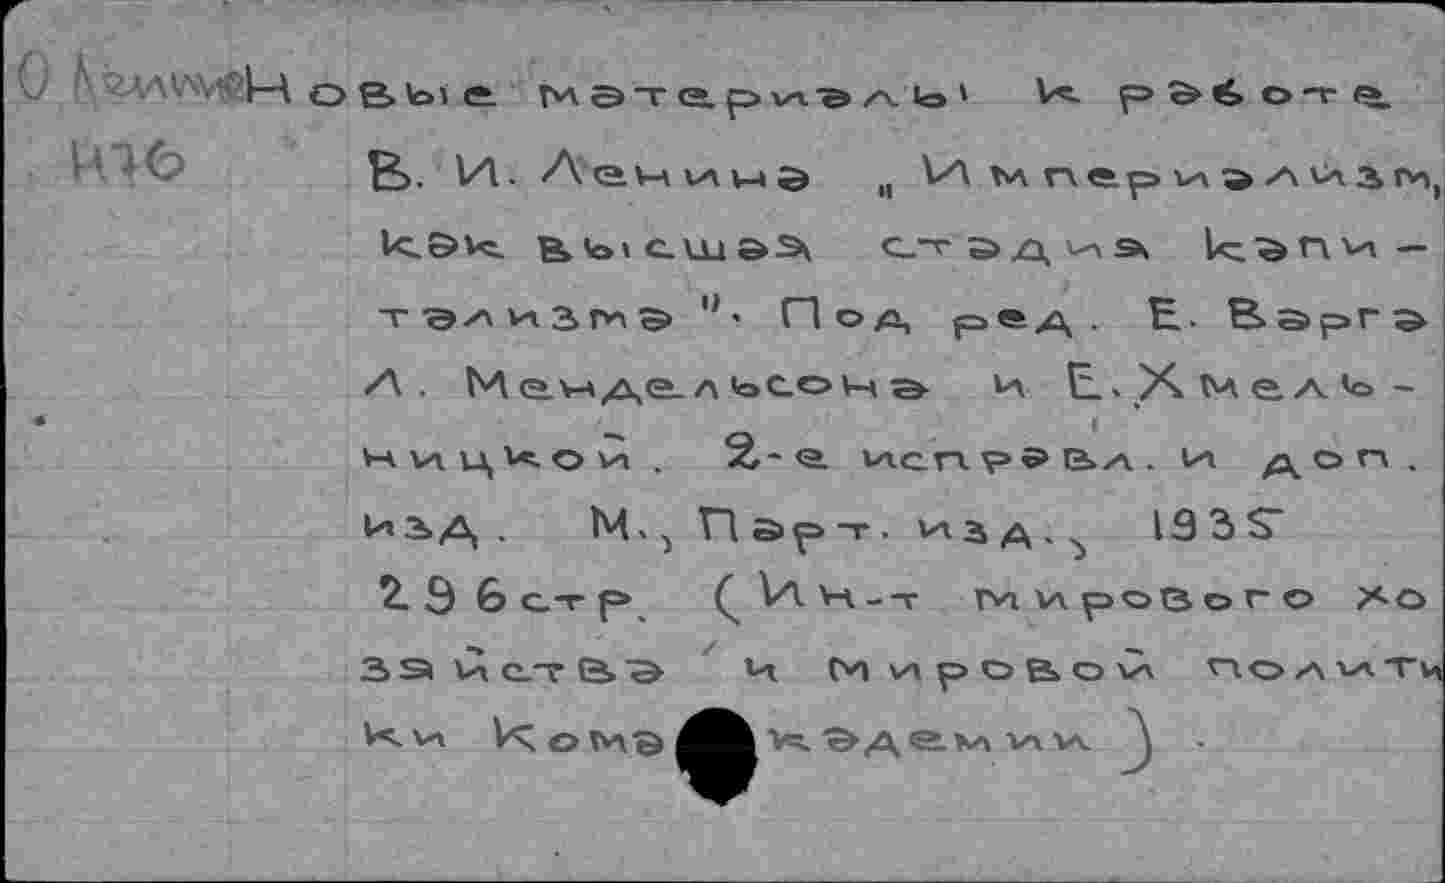 Новые материалы к работе
Н76 В. И. Ленина „Империализм,
как высшая стадия капи-
тализма". Под ред. Е. Варга
Л. Мендельсона и Е. Хмель-
ницкой. 2-е исправл. и доп.
изд. М., Парт. изд., 1935
296 стр. (Ин-т мирового хо
зяйства и мировой полити
ки Комакадемии).